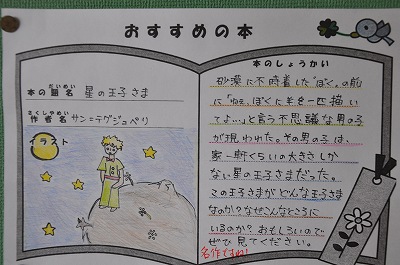 おすすめの本
だいめい
本の題名 星の王子さま
さくしゃめい
作者名 サン=テグジュペリ
イラスト
本のしょうかい
砂漠に不時着した「ぼく」の前
に「ねぇ、ぼくに羊を一匹描い
てよ…」と言う不思議な男の子
が現われた。その男の子は、
家一軒くらいの大きさしか
ない星の王子さまだった。
この王子さまがどんな王子さま
なのか?なぜこんなところに
いるのか?おもしろいので
ぜひ見てください。
名作ですね!